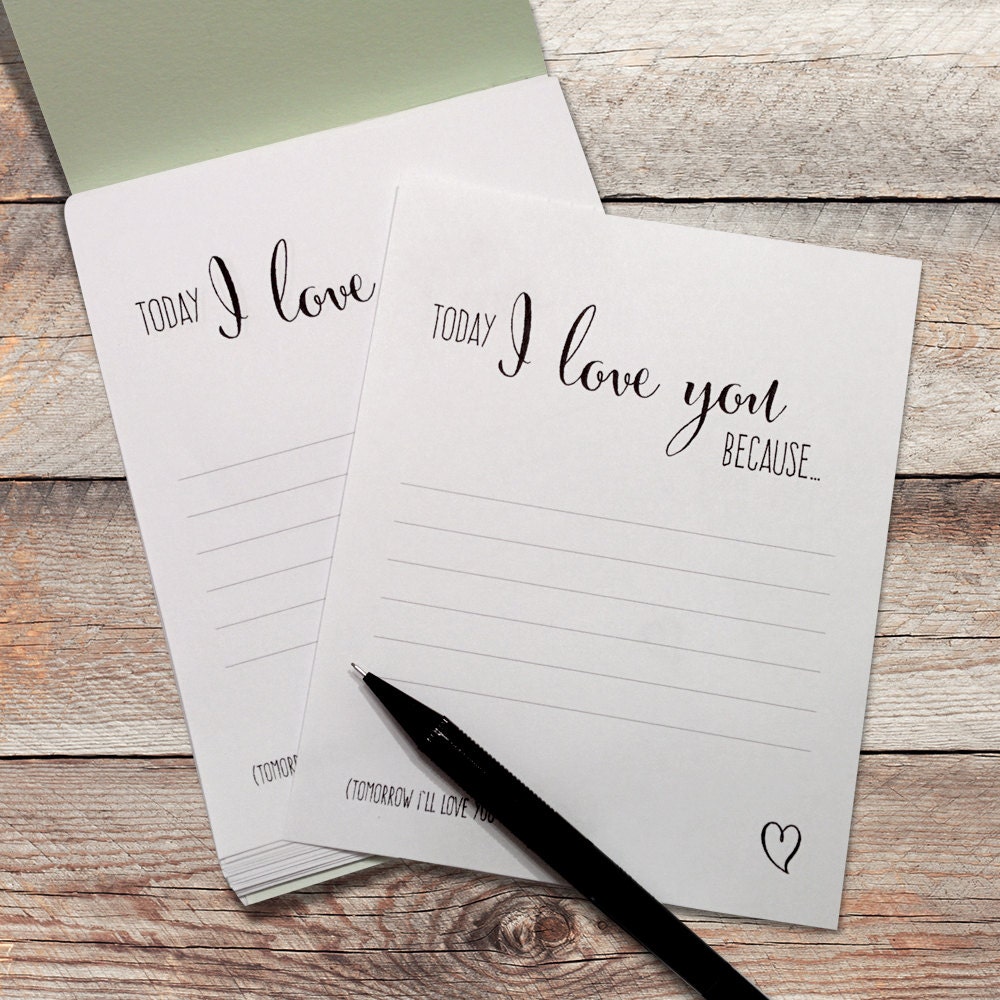 TODAY I love
(TOMOR
TODAY I love you
BECAUSE...
(TOMORROW I'LL LOVE YOU